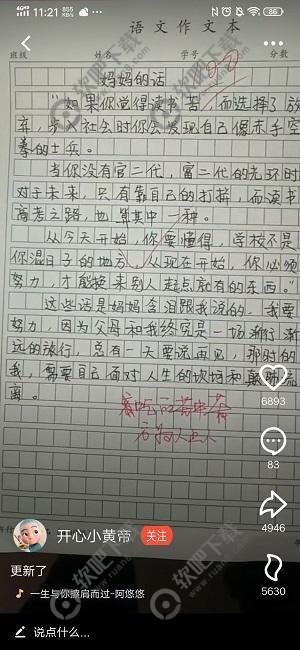 11:21
86
语文作文本
班级 姓名 学号 分数
妈妈的话
"如果你觉得读书苦,而选择了放
弃,步入社会时你会发现自己像赤手空
拳的士兵。
当你没有官二代,富二代的光环时
对于未来,只有靠自己的打拼,而读书
高考之路,也算其中一种。
从今天开始,你要懂得,学校不是
你混日子的地方,从现在开始,你必须
努力,才能换来别人起点就有的东西。"
这些话是妈妈含泪跟我说的,我要
努力,因为父母和我终究是一场渐行渐
远的旅行,总有一天要说再见,那时的
我,需要自己面对人生的坎坷和颠沛流
离。
6893
83
4946
5630
开心小黄帝
关注
更新了
一生与你擦肩而过-阿悠悠
说点什么...
软吧下载